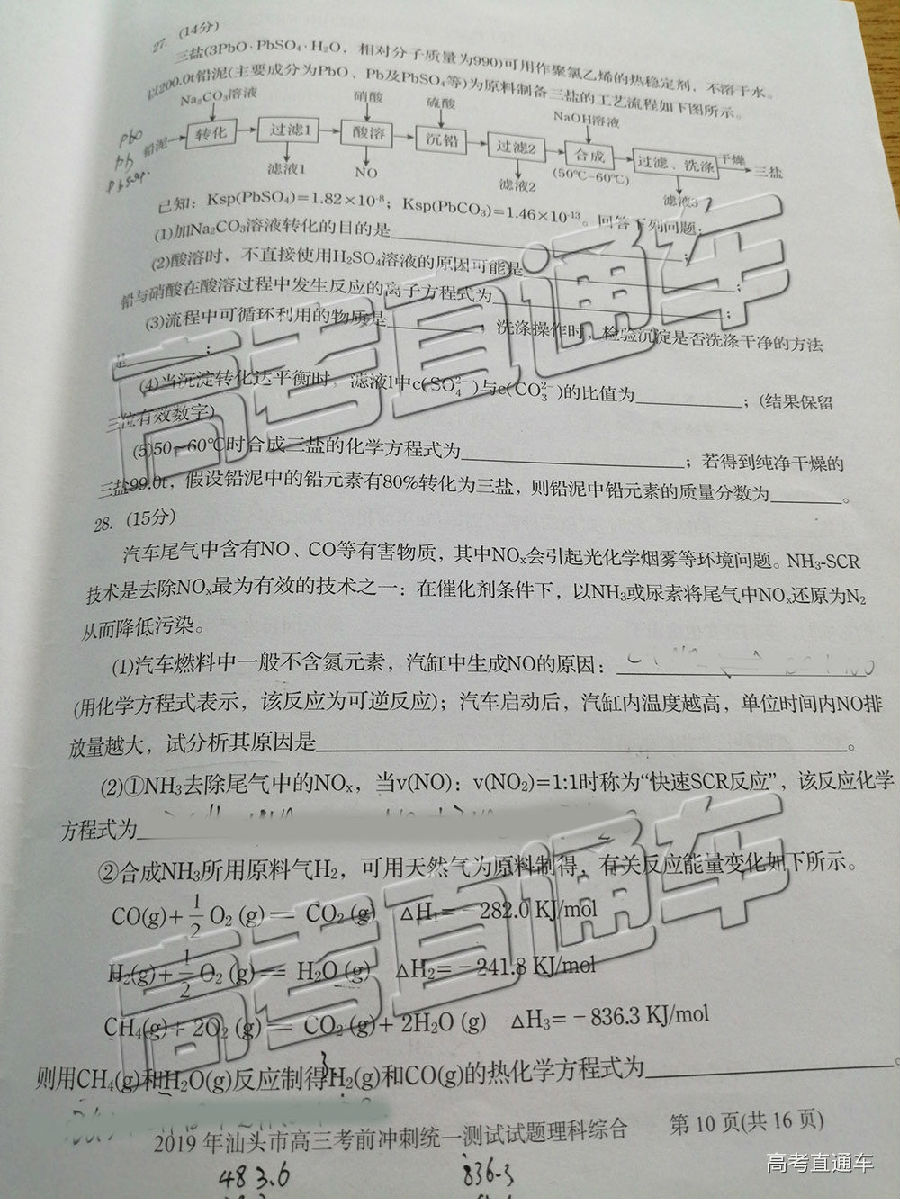 27. (14分)
三盐(3PbO·PbSO₄·H₂O，相对分子质量为990)可用作聚氯乙烯的热稳定剂，不溶于水。
以200.0t铅泥(主要成分为PbO、Pb及PbSO₄等)为原料制备三盐的工艺流程如下图所示。
Na₂CO₃溶液 硝酸 硫酸 NaOH溶液
PbO
Pb
PbSO₄
铅泥 转化 过滤1 酸溶 沉铅 过滤2 合成 过滤、洗涤 干燥 三盐
(50℃-60℃)
滤液1 NO 滤液2 滤液3
已知：Ksp(PbSO₄)=1.82×10⁻⁸；Ksp(PbCO₃)=1.46×10⁻¹³。回答下列问题：
(1)加Na₂CO₃溶液转化的目的是；
(2)酸溶时，不直接使用H₂SO₄溶液的原因可能是；
铅与硝酸在酸溶过程中发生反应的离子方程式为；
(3)流程中可循环利用的物质是，洗涤操作时，检验沉淀是否洗涤干净的方法
是；
(4)当沉淀转化达平衡时，滤液1中c(SO₄²⁻)与c(CO₃²⁻)的比值为；(结果保留
三位有效数字)
(5)50-60℃时合成三盐的化学方程式为；若得到纯净干燥的
三盐99.0t，假设铅泥中的铅元素有80%转化为三盐，则铅泥中铅元素的质量分数为。
28. (15分)
汽车尾气中含有NO、CO等有害物质，其中NOₓ会引起光化学烟雾等环境问题。NH₃-SCR
技术是去除NOₓ最为有效的技术之一：在催化剂条件下，以NH₃或尿素将尾气中NOₓ还原为N₂
从而降低污染。
(1)汽车燃料中一般不含氮元素，汽缸中生成NO的原因：
(用化学方程式表示，该反应为可逆反应)；汽车启动后，汽缸内温度越高，单位时间内NO排
放量越大，试分析其原因是。
(2)①NH₃去除尾气中的NOₓ，当v(NO)：v(NO₂)=1:1时称为“快速SCR反应”，该反应化学
方程式为
②合成NH₃所用原料气H₂，可用天然气为原料制得，有关反应能量变化如下所示。
CO(g)+1/2 O₂(g)═CO₂(g) △H₁=－282.0 KJ/mol
H₂(g)+1/2 O₂(g)═H₂O(g) △H₂=－241.8 KJ/mol
CH₄(g)+2O₂(g)═CO₂(g)+2H₂O(g) △H₃=－836.3 KJ/mol
3
则用CH₄(g)和H₂O(g)反应制得H₂(g)和CO(g)的热化学方程式为。
2019年汕头市高三考前冲刺统一测试试题理科综合 第10页(共16页)
483.6 836.3
高考直通车
高考直通车
高考直通车